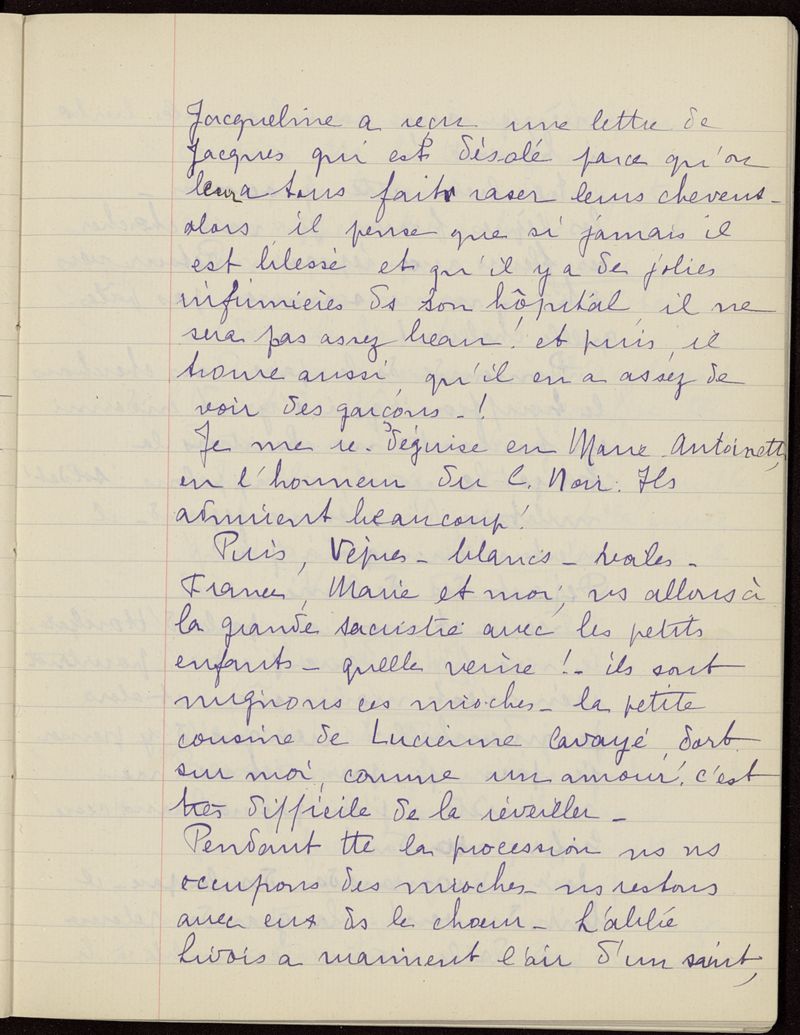 Jacqueline a reçu une lettre de
Jacques qui est désolé parce qu'on
leur a tous fait raser leurs cheveux -
alors, il pense que si jamais il
est blessé et qu'il y a de jolies
infirmières ds son hôpital, il ne
sera pas assez beau! et puis, il
trouve aussi, qu'il en a assez de
voir des garçons - !
Je me re-déguise en Marie Antoinette,
en l'honneur du C. Noir. Ils
admirent beaucoup!
Puis, Vêpres - blancs - voiles -
France, Marie et moi, ns allons à
la grande sacristie avec les petits
enfants - quelle veine! - ils sont
mignons ces mioches - la petite
cousine de Lucienne Cavayé, dort
sur moi, comme un amour! c'est
très difficile de la réveiller -
Pendant tte la procession ns ns
occupons des mioches - ns restons
avec eux ds le chœur - L'abbé
Livois a vraiment l'air d'un saint,